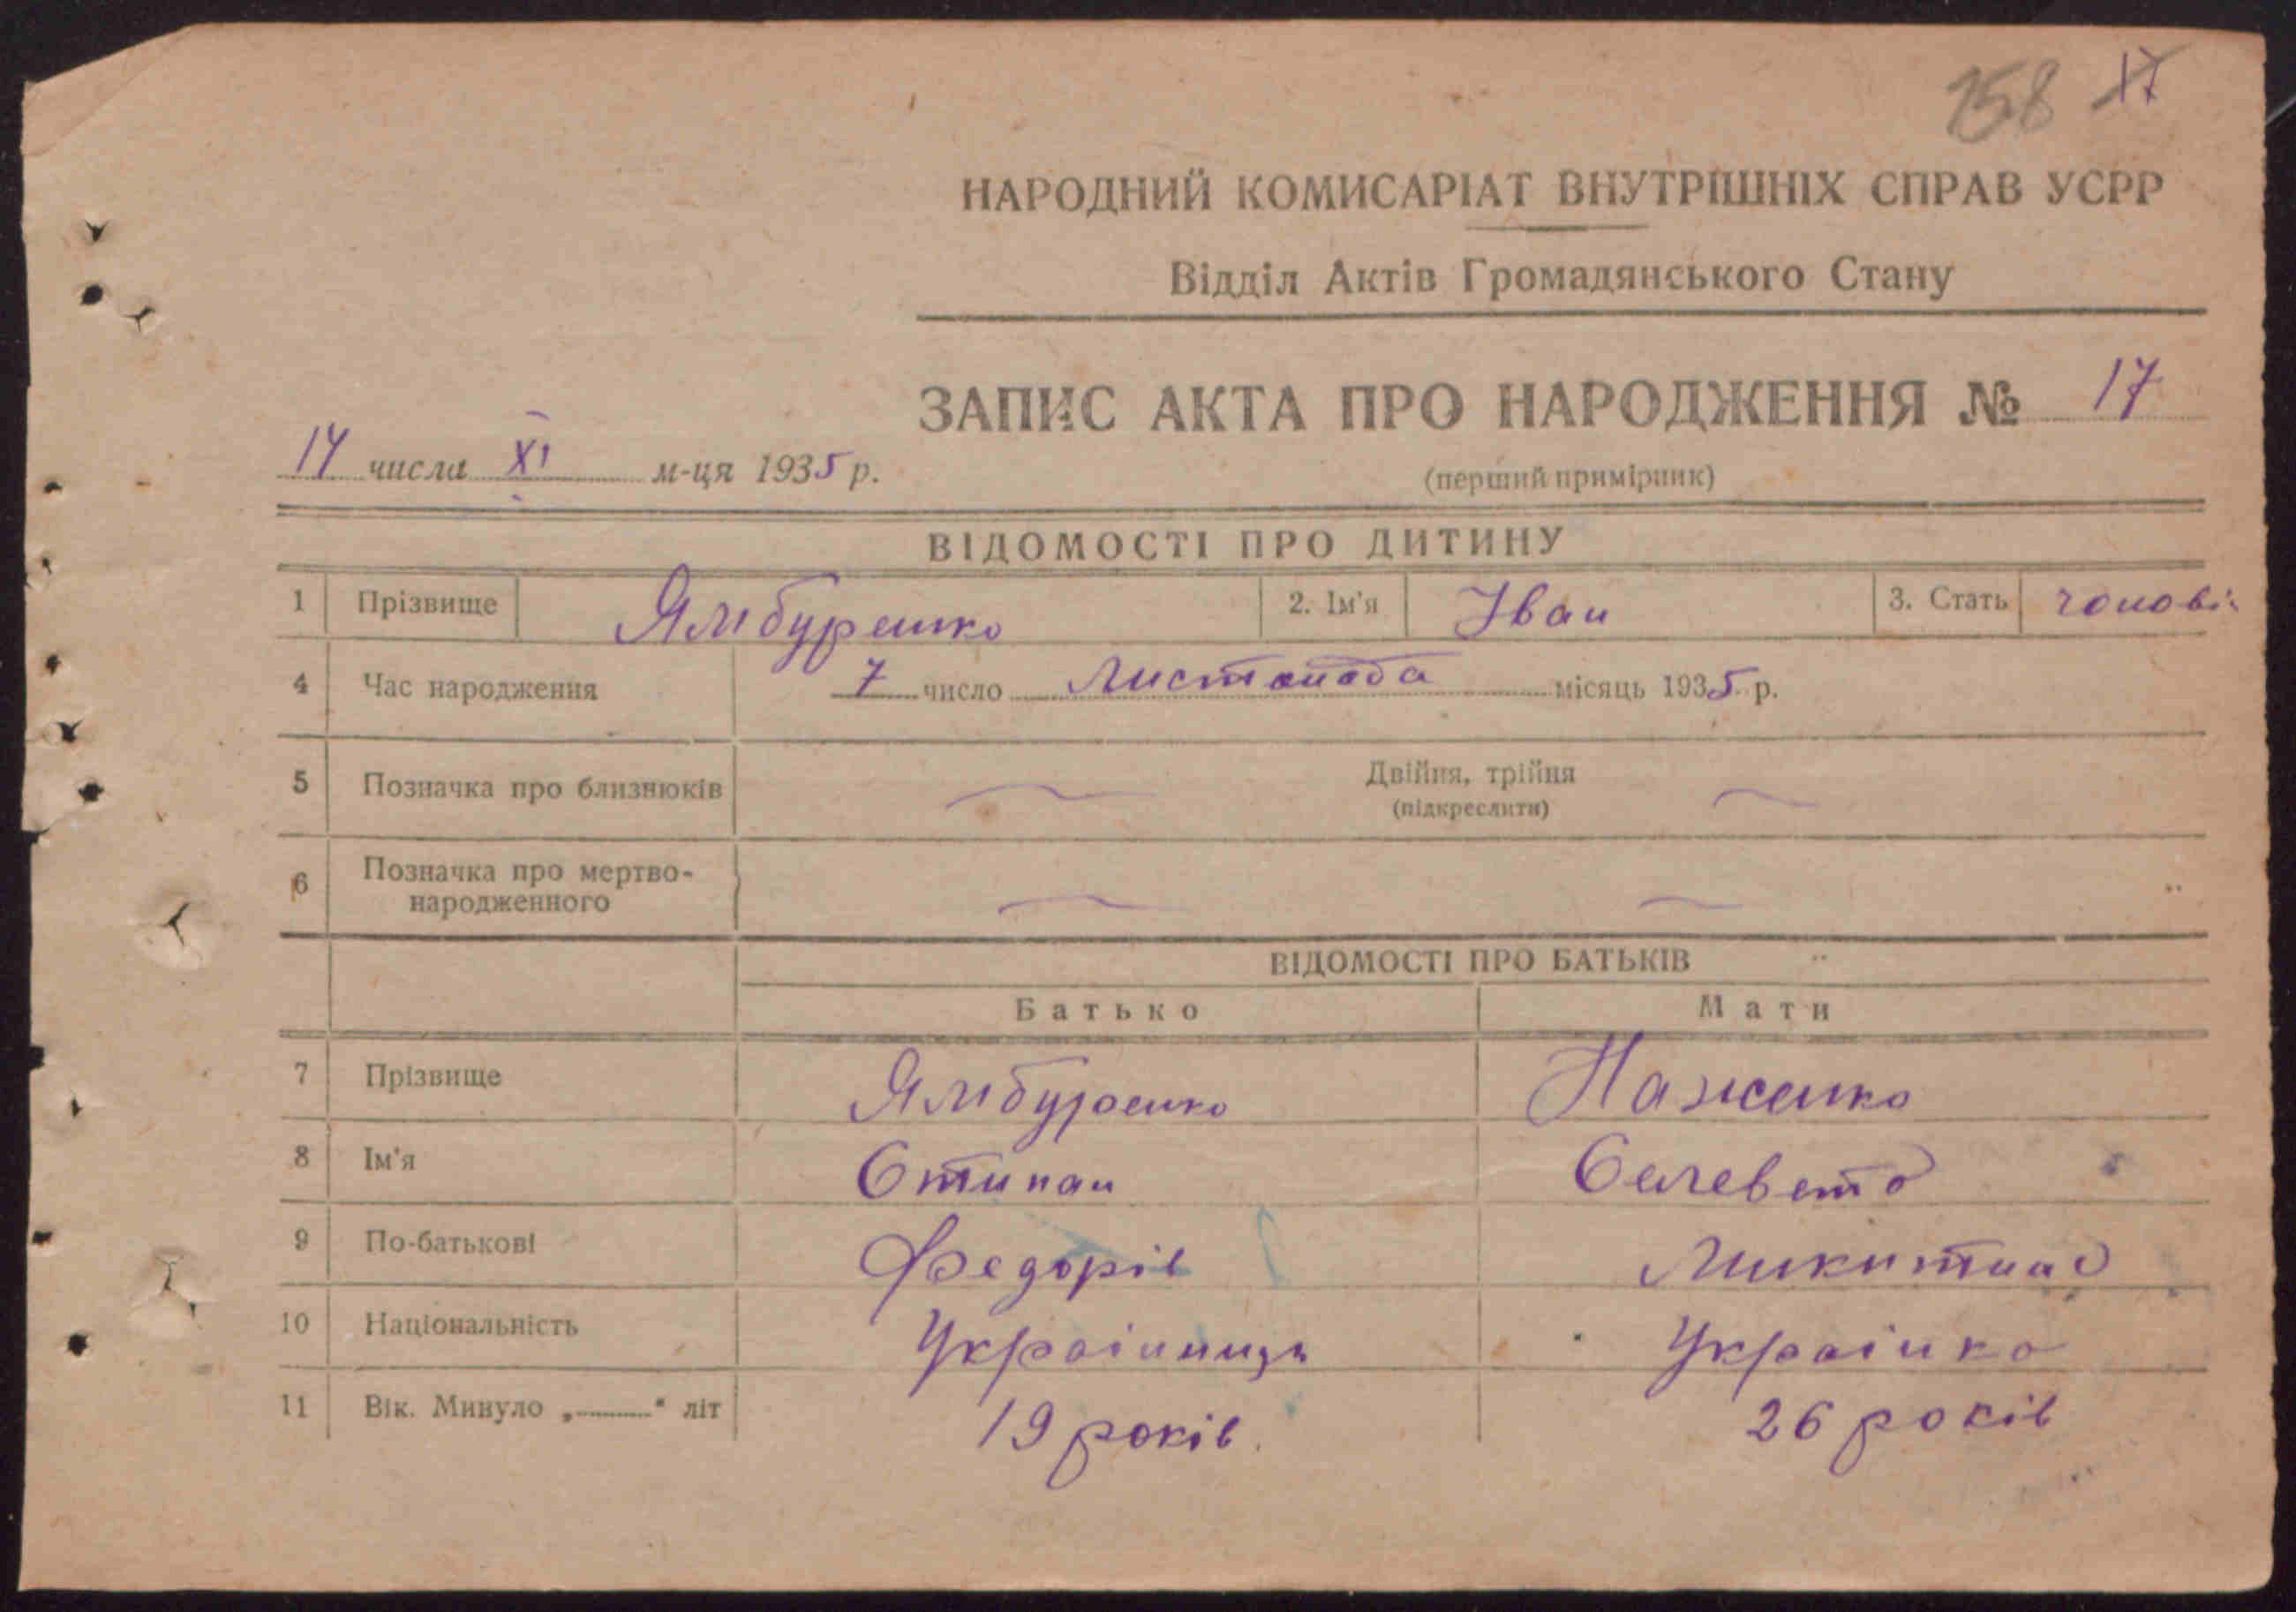 158 17
НАРОДНИЙ КОМИСАРІАТ ВНУТРІШНІХ СПРАВ УСРР
Відділ Актів Громадянського Стану
ЗАПИС АКТА ПРО НАРОДЖЕННЯ № 17
14 числа XI м-ця 1935 р.
(перший примірник)
ВІДОМОСТІ ПРО ДИТИНУ
1 Прізвище Ямбуренко 2. Ім'я Іван 3. Стать
4 Час народження 7 число Листопада місяць 1935 р.
5 Позначка про близнюків Двійня, трійня
(підкреслити)
6 Позначка про мертво-
народженного
ВІДОМОСТІ ПРО БАТЬКІВ
Батько Мати
7 Прізвище Ямбуренко
8 Ім'я Стипан
9 По-батькові Федорів
10 Національність Українка
11 Вік. Минуло „ " літ 19 років 26 років